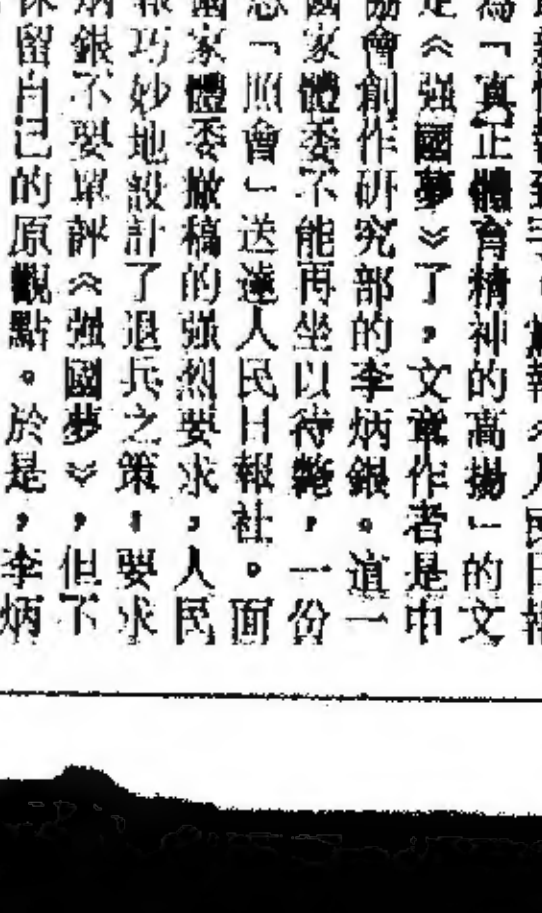 報
為「真正體育精神的高揚」的文
是《强國夢》了，文章作者是中
協會創作研究部的李炳銀。這一
國家體委不能再坐以待斃，一份
「照會」送達人民日報社。面
國家體委撤稿的强烈要求，人民
報巧妙地設計了退兵之策，要求
炳銀不要單評《强國夢》，但不
保留自己的原觀點。於是，李炳